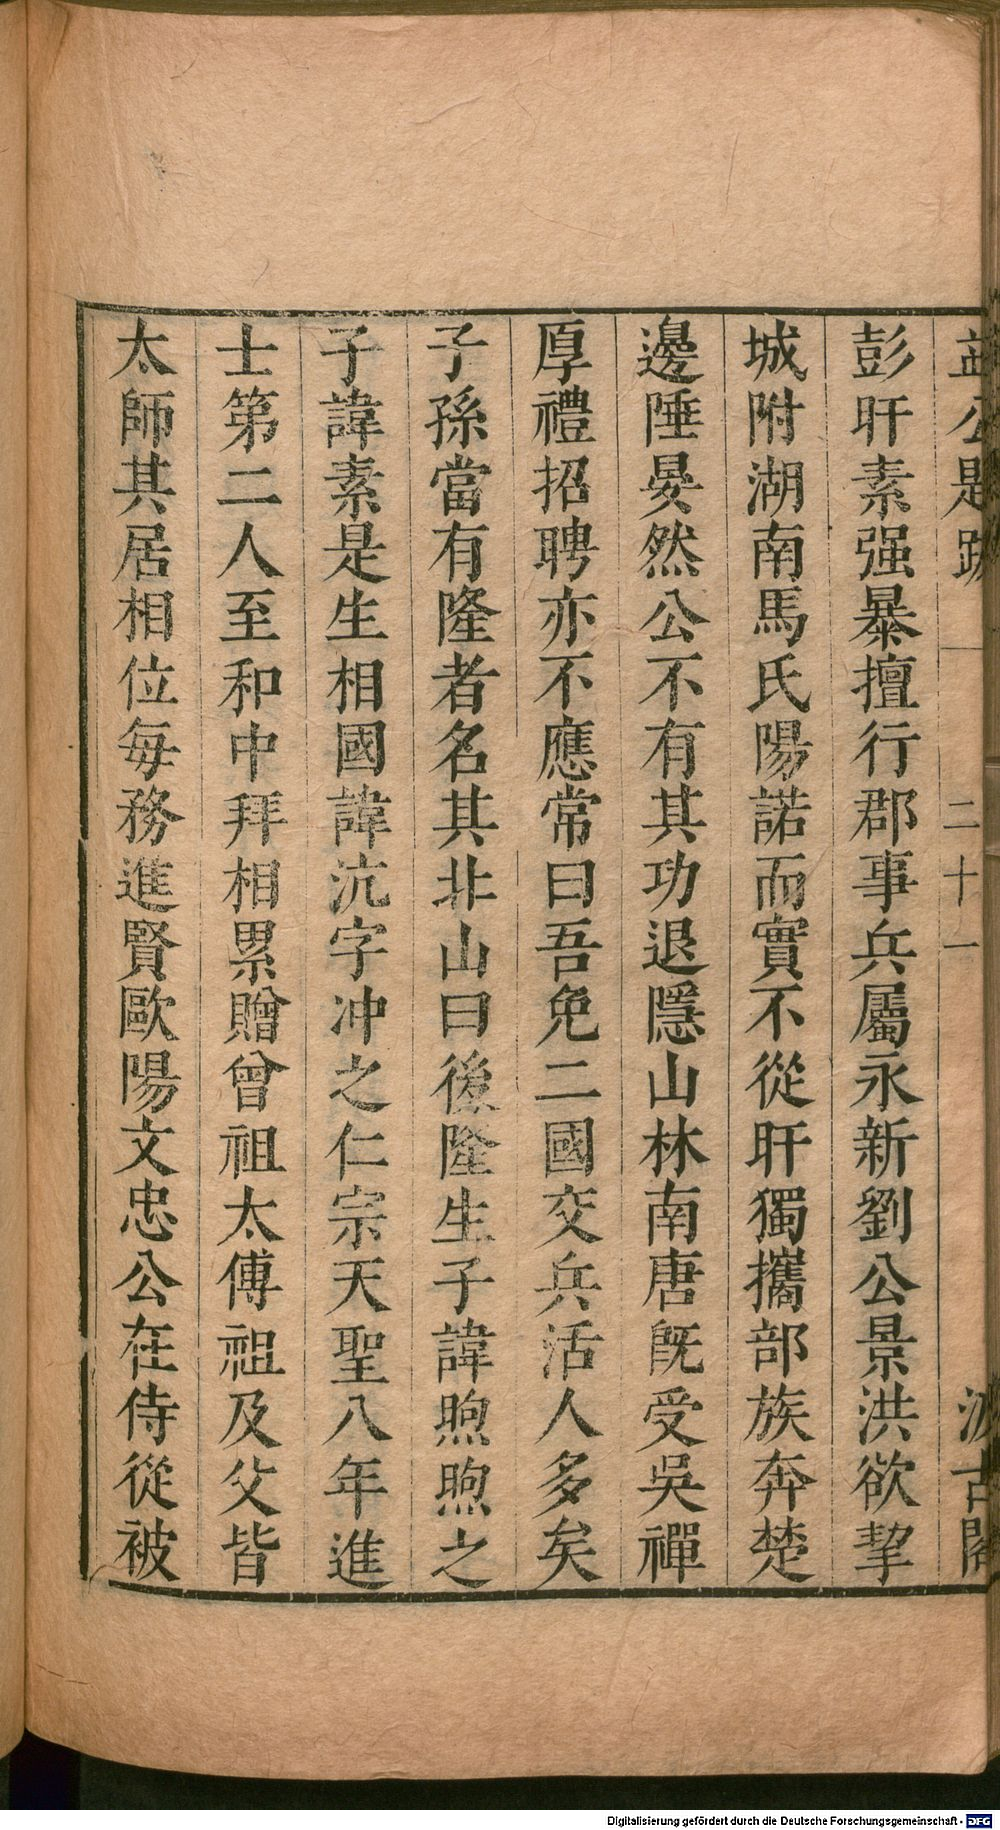 益公題跋 二十一 汲古閣
彭玕素强暴擅行郡事兵屬永新劉公景洪欲挈
城附湖南馬氏陽諾而實不從玕獨攜部族奔楚
邊陲晏然公不有其功退隱山林南唐旣受吳禪
厚禮招聘亦不應常曰吾免二國交兵活人多矣
子孫當有隆者名其非山曰後隆生子諱煦煦之
子諱素是生相國諱沆字冲之仁宗天聖八年進
士第二人至和中拜相累贈曾祖太傅祖及父皆
太師其居相位每務進賢歐陽文忠公在侍從被
Digitalisierung gefördert durch die Deutsche Forschungsgemeinschaft - DFG